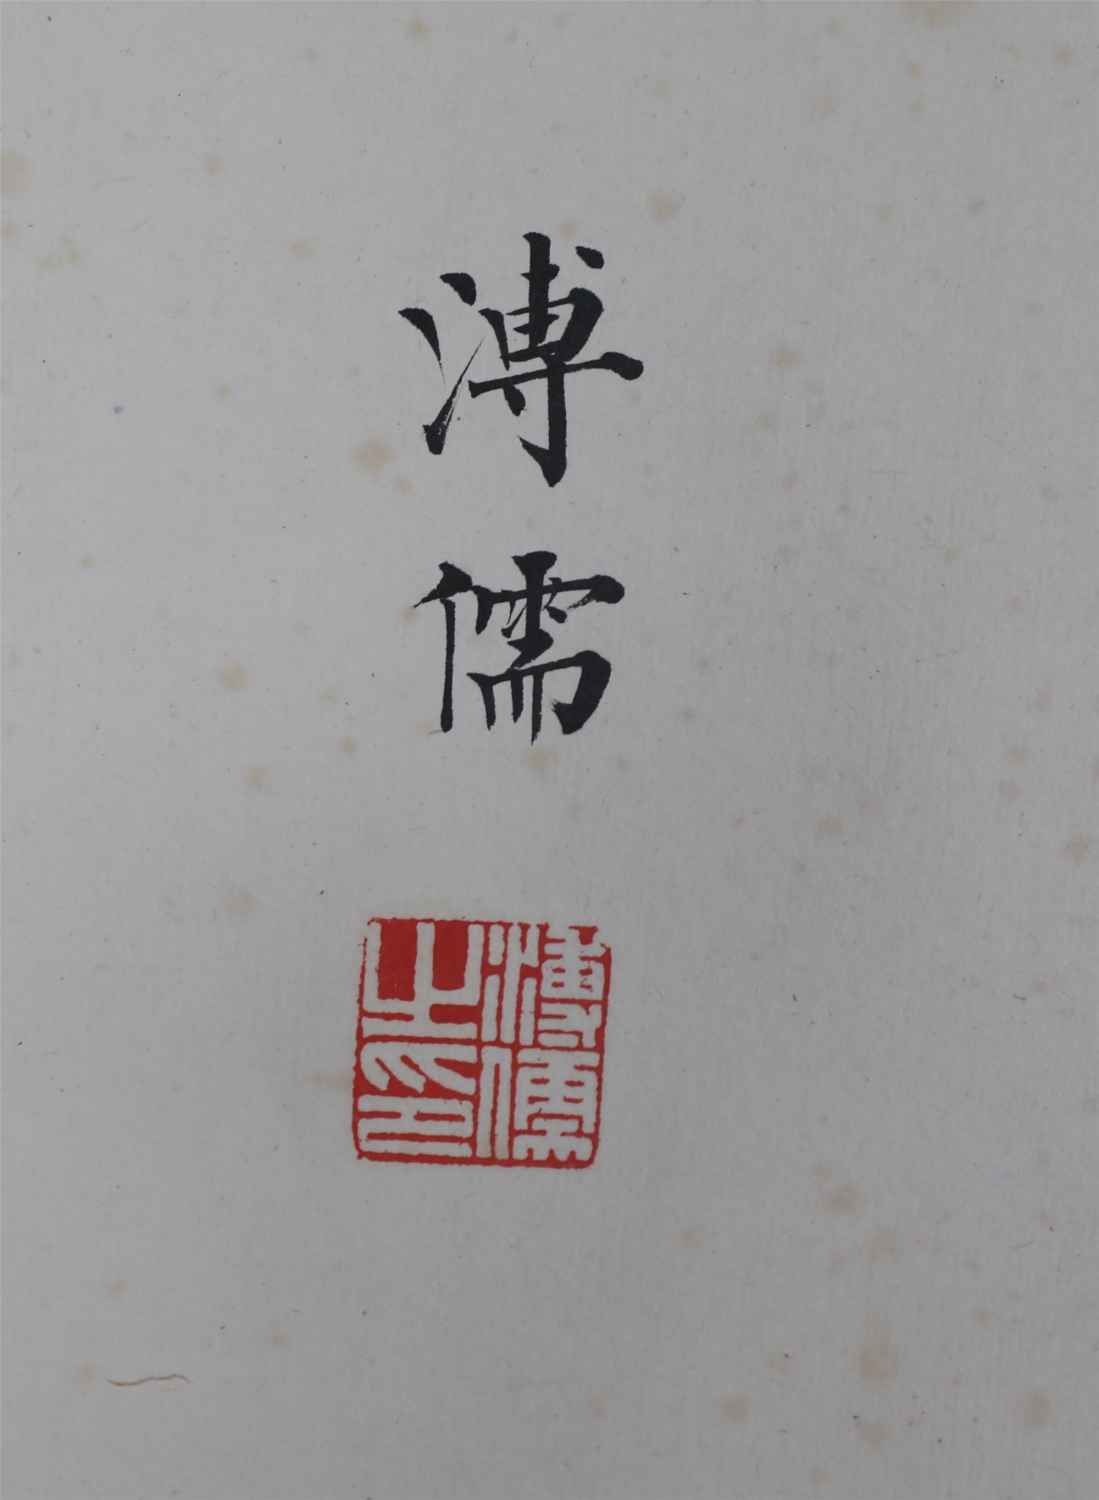 溥儒
溥儒
之印